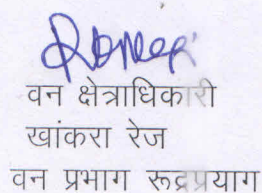 वन क्षेत्राधिकारी
खांकरा रेज
वन प्रभाग रूद्रप्रयाग